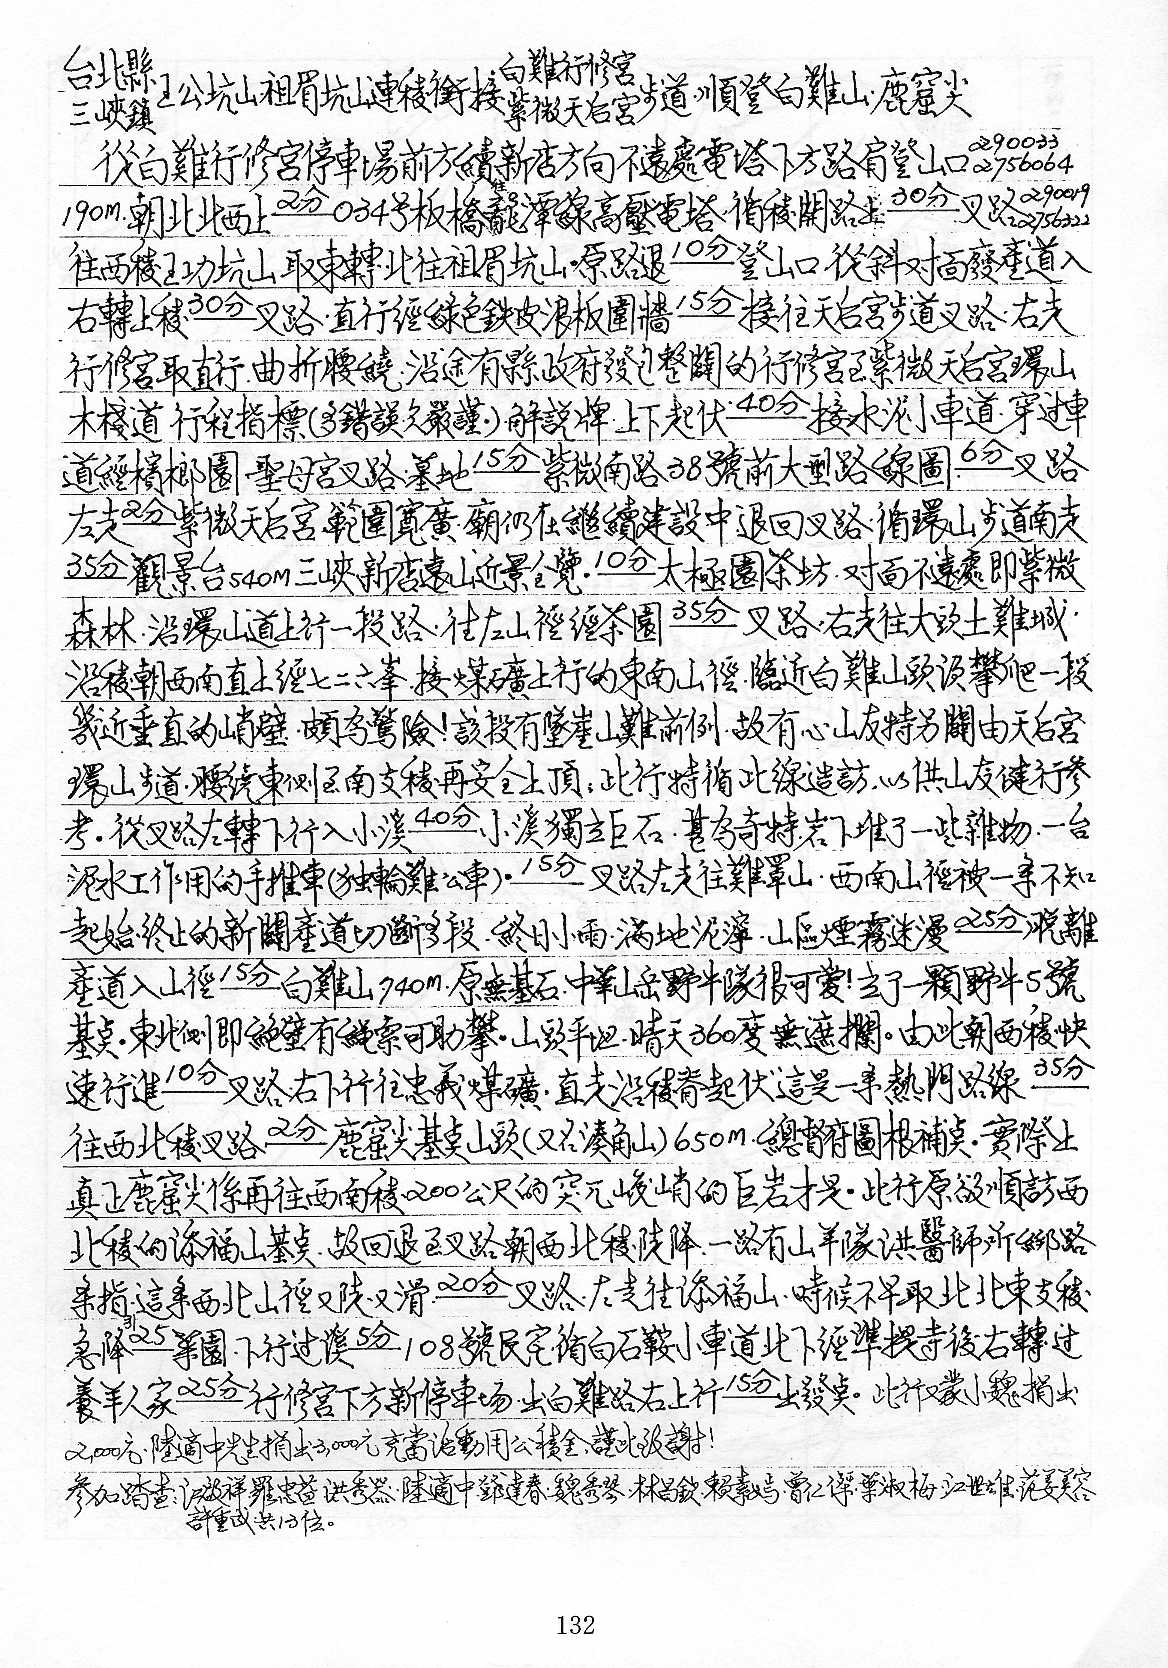 台北縣三峽鎮 王公坑山祖眉坑山連稜銜接白雞行修宮紫微天后宮步道順登白雞山.鹿窟尖
從白雞行修宮停車場前方續新店方向不遠處電塔下方路肩登山口290033 2756064
190M.朝北北西上2分034号板橋龍潭線高壓電塔.循稜開路上30分叉路290019 2756322
往西稜王功坑山取東轉北往祖眉坑山.原路退10分登山口.從斜对面廢產道入
右轉上稜30分叉路.直行經綠色鉄皮浪板圍牆15分接往天后宮步道叉路.右走
行修宮取直行.曲折腰繞.沿途有縣政府發包整闢的行修宮至紫微天后宮環山
木棧道行程指標(多錯誤欠嚴謹.)解說牌.上下起伏40分接水泥小車道.穿过車
道經檳榔園.聖母宮叉路.墓地15分紫微南路38號前大型路線圖.6分叉路
左走2分紫微天后宮.範圍寬廣.廟仍在繼續建設中退回叉路.循環山步道南走
35分觀景台540M三峽新店遠山近景全覽.10分太極園茶坊.对面不遠處即紫微
森林.沿環山道上行一段路.往左山徑經茶園35分叉路.右走往大頭土雞城.
沿稜朝西南直上經七二六峯.接煤礦上行的東南山徑.臨近白雞山頭須攀爬一段
幾近垂直的峭壁.頗為驚險!該段有墜崖山難前例.故有心山友特另闢由天后宮
環山步道.腰繞東側至南支稜再安全上頂;此行特循此線造訪.以供山友健行參
考.從叉路左轉下行入小溪40分小溪獨立巨石.甚為奇特岩下堆了一些雜物.一台
泥水工作用的手推車(独輪雞公車).15分叉路左走往雞罩山.西南山徑被一条不知
起始終止的新闢產道切斷多段.終日小雨.滿地泥濘.山區煙霧迷漫25分脫離
產道入山徑15分白雞山740M.原無基石.中華山岳野牛隊很可愛!立了一顆野牛5號
基点.東北側即絕壁有繩索可助攀.山頭平坦.晴天360度無遮攔。由此朝西稜快
速行進10分叉路.右下行往忠義煤礦.直走沿稜脊起伏這是一条熱門路線35分
往西北稜叉路2分鹿窟尖基点山頭(又名湊角山)650M.總督府圖根補点.實際上
真正鹿窟尖係再往西南稜200公尺的突兀峻峭的巨岩才是.此行原欲順訪西
北稜的添福山基点.故回退至叉路朝西北稜陡降.一路有山羊隊洪醫師所綁路
条指引.這条西北山徑又陡又滑.20分叉路.左走往添福山.時候不早取北北東支稜
急降25菓園.下行过溪5分108號民宅循白石鞍小車道北下經準提寺後右轉过
養羊人家25分行修宮下方新停車场.出白雞路右上行15分出發点.此行又蒙小魏捐出
2,000元.陸適中先生捐出3,000元充當活動用公積金,謹此致謝!
參加踏查:羅忠益.洪秀器.陸適中.鄧達春.魏秀琴.林昌欽.賴素嫣.曾仁傑.葉淑梅.江世雄.范姜美容
許重成.共13位。
132